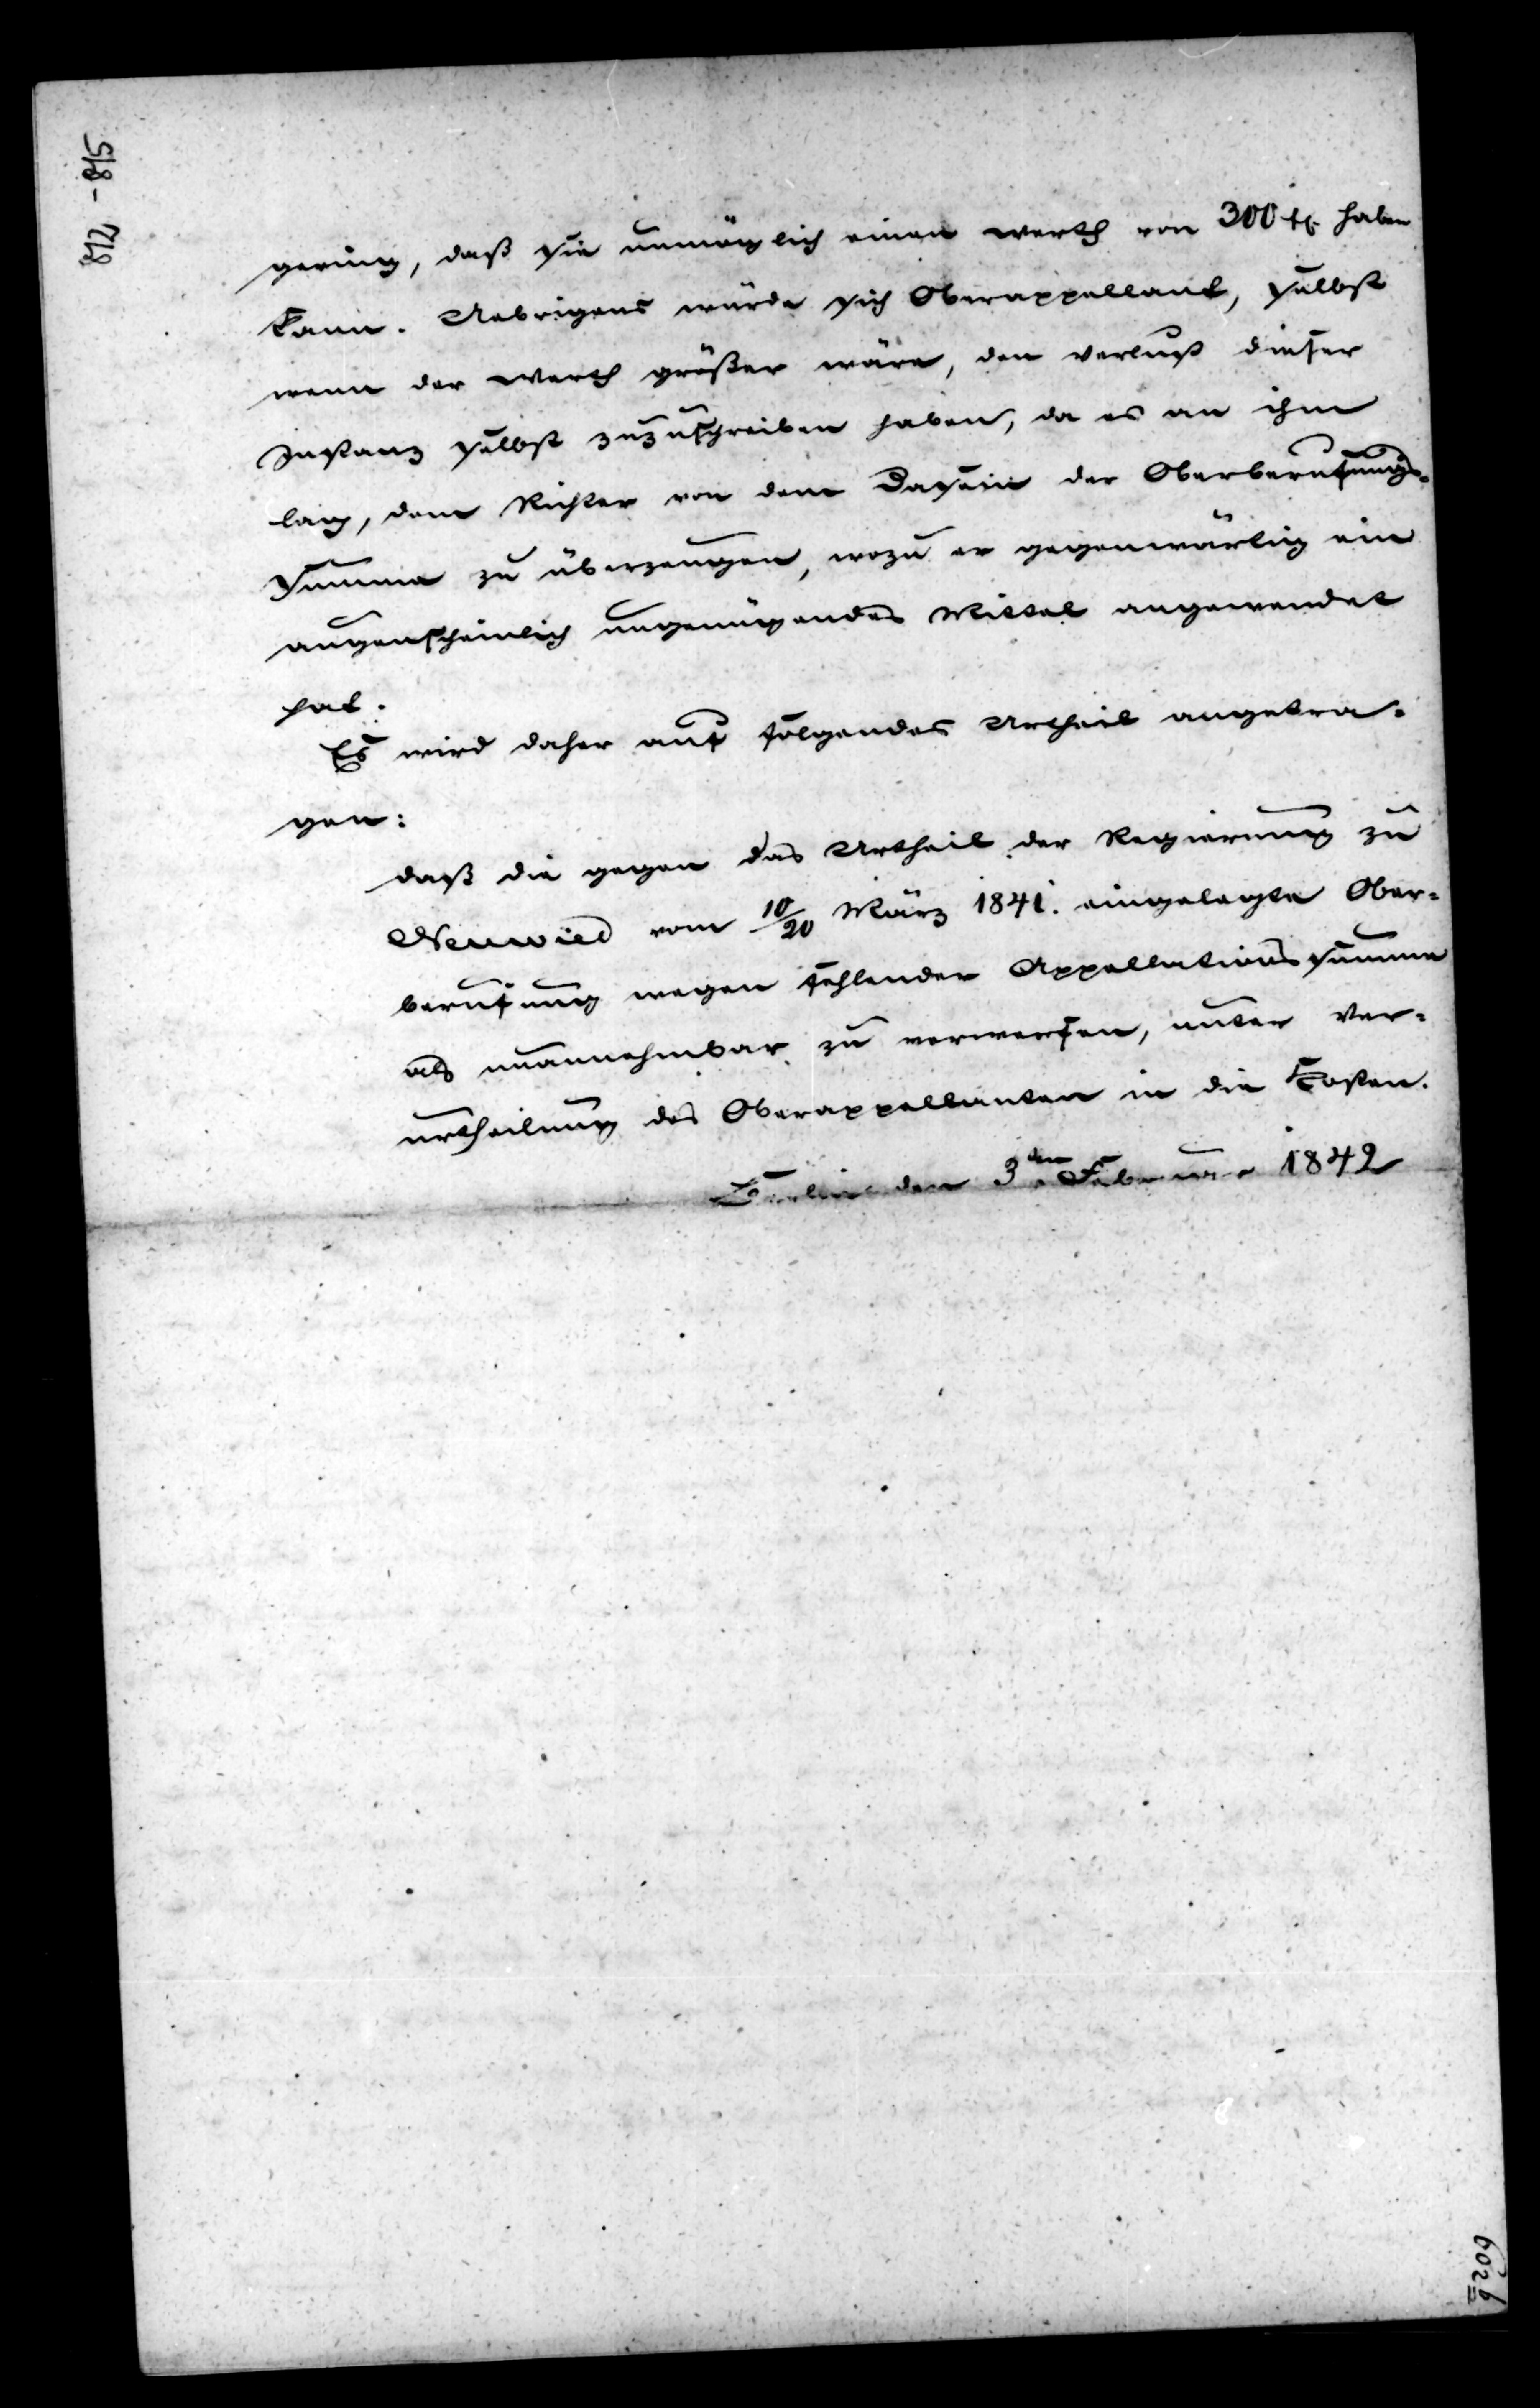 812 - 815
gering, daß sie unmöglich einen Werth von 300 fl. haben
kann. Uebrigens würde sich Oberappellant, selbst
wenn der Werth größer wäre, den Verlust dieser
Instanz selbst zuzuschreiben haben, da es an ihm
lag, dem Richter von dem Dasein der Oberberufungs-
summe zu überzeugen, wozu er gegenwärtig ein
augenscheinlich ungenügendes Mittel angewendet
hat.
Es wird daher auf folgendes Urtheil angetra-
gen:
daß die gegen das Urtheil der Regierung zu
Neuwied vom 10/20 März 1841. eingelegte Ober-
berufung wegen fehlender Appellationssumme
als unannehmbar zu verwerfen, unter Ver-
urtheilung des Oberappellanten in die Kosten.
Berlin den 3ten Februar 1842
602b